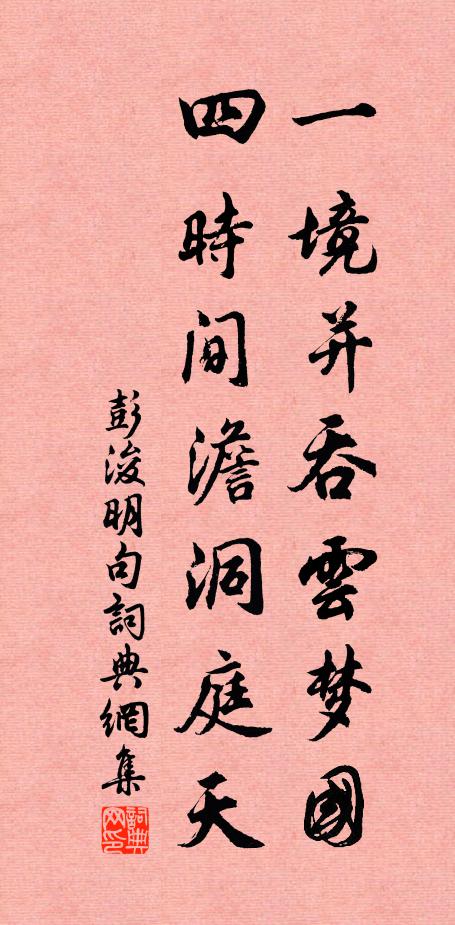 一境并吞雲梦國
四時间澹洞庭天
彭浚明句詞典網集
詞典网印